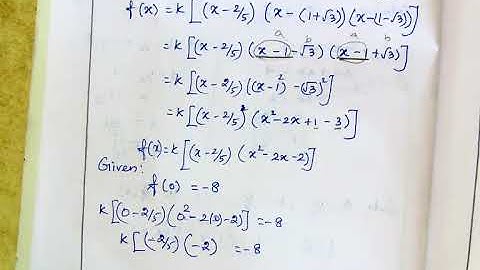 f(x) = k [(x - 2/5) (x - (1+√3)) (x - (1-√3))]
a b a b
= k [(x - 2/5) (x - 1 - √3) (x - 1 + √3)]
= k [(x - 2/5) ((x-1)² - (√3)²]
= k [(x - 2/5) (x² - 2x + 1 - 3)]
f(x) = k [(x - 2/5) (x² - 2x - 2)]
Given:
f(0) = -8
k [(0 - 2/5) (0² - 2(0) - 2)] = -8
k [(-2/5) (-2) = -8